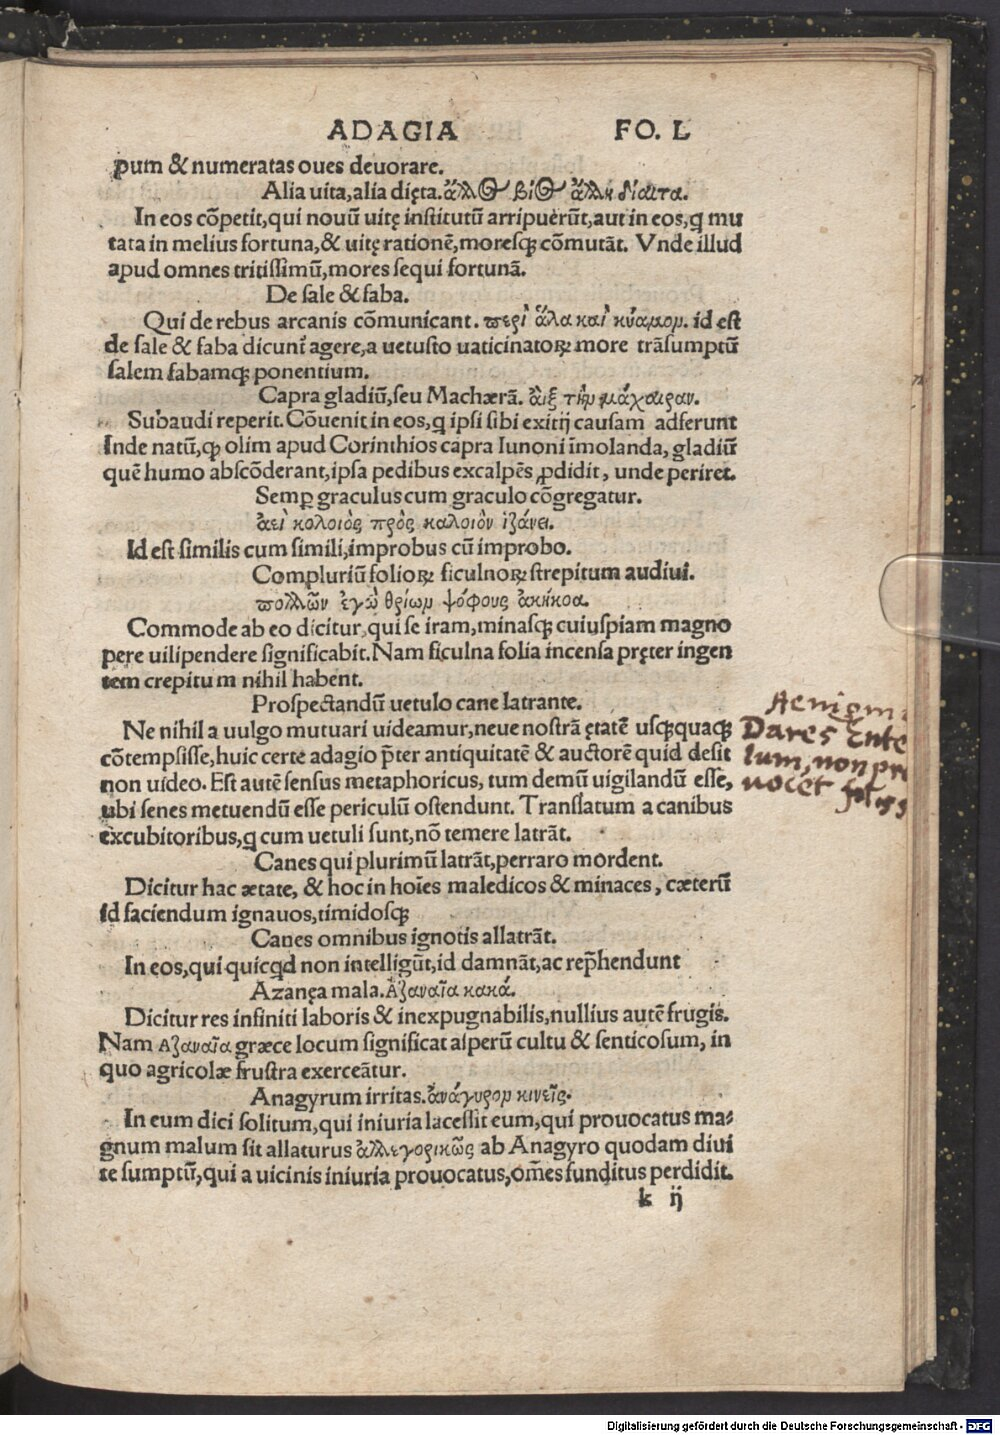 ADAGIA FO. L
pum & numeratas oues deuorare.
Alia uita, alia dięta. ἄλλΘ βίΘ ἄλλη δίαιτα.
In eos cōpetit, qui nouū uitę institutū arripuerūt, aut in eos, ꝗ mu
tata in melius fortuna, & uitę rationē, moresqꝫ cōmutāt. Vnde illud
apud omnes tritissimū, mores sequi fortunā.
De sale & faba.
Qui de rebus arcanis cōmunicant. περὶ ἅλα καὶ κύαμομ. id est
de sale & faba dicunt̄ agere, a uetusto uaticinatoꝝ more trāsumptū
salem fabamqꝫ ponentium.
Capra gladiū, seu Machærā. ἂιξ τὴμ μάχαιραν.
Subaudi reperit. Cōuenit in eos, ꝗ ipsi sibi exitij causam adferunt
Inde natū, ꝙ olim apud Corinthios capra Iunoni īmolanda, gladiū
quē humo abscōderant, ipsa pedibus excalpēs ꝓdidit, unde periret.
Semꝑ graculus cum graculo cōgregatur.
ἀεὶ κολοιὸς πρὸς καλοιὸν ἱζάνει.
Id est similis cum simili, improbus cū improbo.
Compluriū folioꝝ ficulnoꝝ strepitum audiui.
πολλῶν ἐγὼ θρίωμ ψόφους ἀκήκοα.
Commode ab eo dicitur, qui se iram, minasqꝫ cuiuspiam magno
pere uilipendere significabit. Nam ficulna folia incensa pręter ingen
tem crepitum nihil habent.
Prospectandū uetulo cane latrante.
Ne nihil a uulgo mutuari uideamur, neue nostrā ętatē usqꝫquaqꝫ
cōtempsisse, huic certe adagio p̄ter antiquitatē & auctorē quid desit
non uideo. Est autē sensus metaphoricus, tum demū uigilandū esse,
ubi senes metuendū esse periculū ostendunt. Translatum a canibus
excubitoribus, ꝗ cum uetuli sunt, nō temere latrāt.
Canes qui plurimū latrāt, perraro mordent.
Dicitur hac ætate, & hoc in hoīes maledicos & minaces, cæterū
id faciendum ignauos, timidosqꝫ
Canes omnibus ignotis allatrāt.
In eos, qui quicꝗd non intelligūt, id damnāt, ac rep̄hendunt
Azanęa mala. Ἀζαναῖα κακά.
Dicitur res infiniti laboris & inexpugnabilis, nullius autē frugis.
Nam Αζαναῖα græce locum significat asperū cultu & senticosum, in
quo agricolæ frustra exerceātur.
Anagyrum irritas. ἀνάγυρομ κινεῖς.
In eum dici solitum, qui iniuria lacessit eum, qui prouocatus ma⸗
gnum malum sit allaturus ἀλλεγορικῶς ab Anagyro quodam diui
te sumptū, qui a uicinis iniuria prouocatus, oм̄es funditus perdidit.
k ij
Aenigm
Dares Ente
lum, non pro
uocet
Digitalisierung gefördert durch die Deutsche Forschungsgemeinschaft - DFG